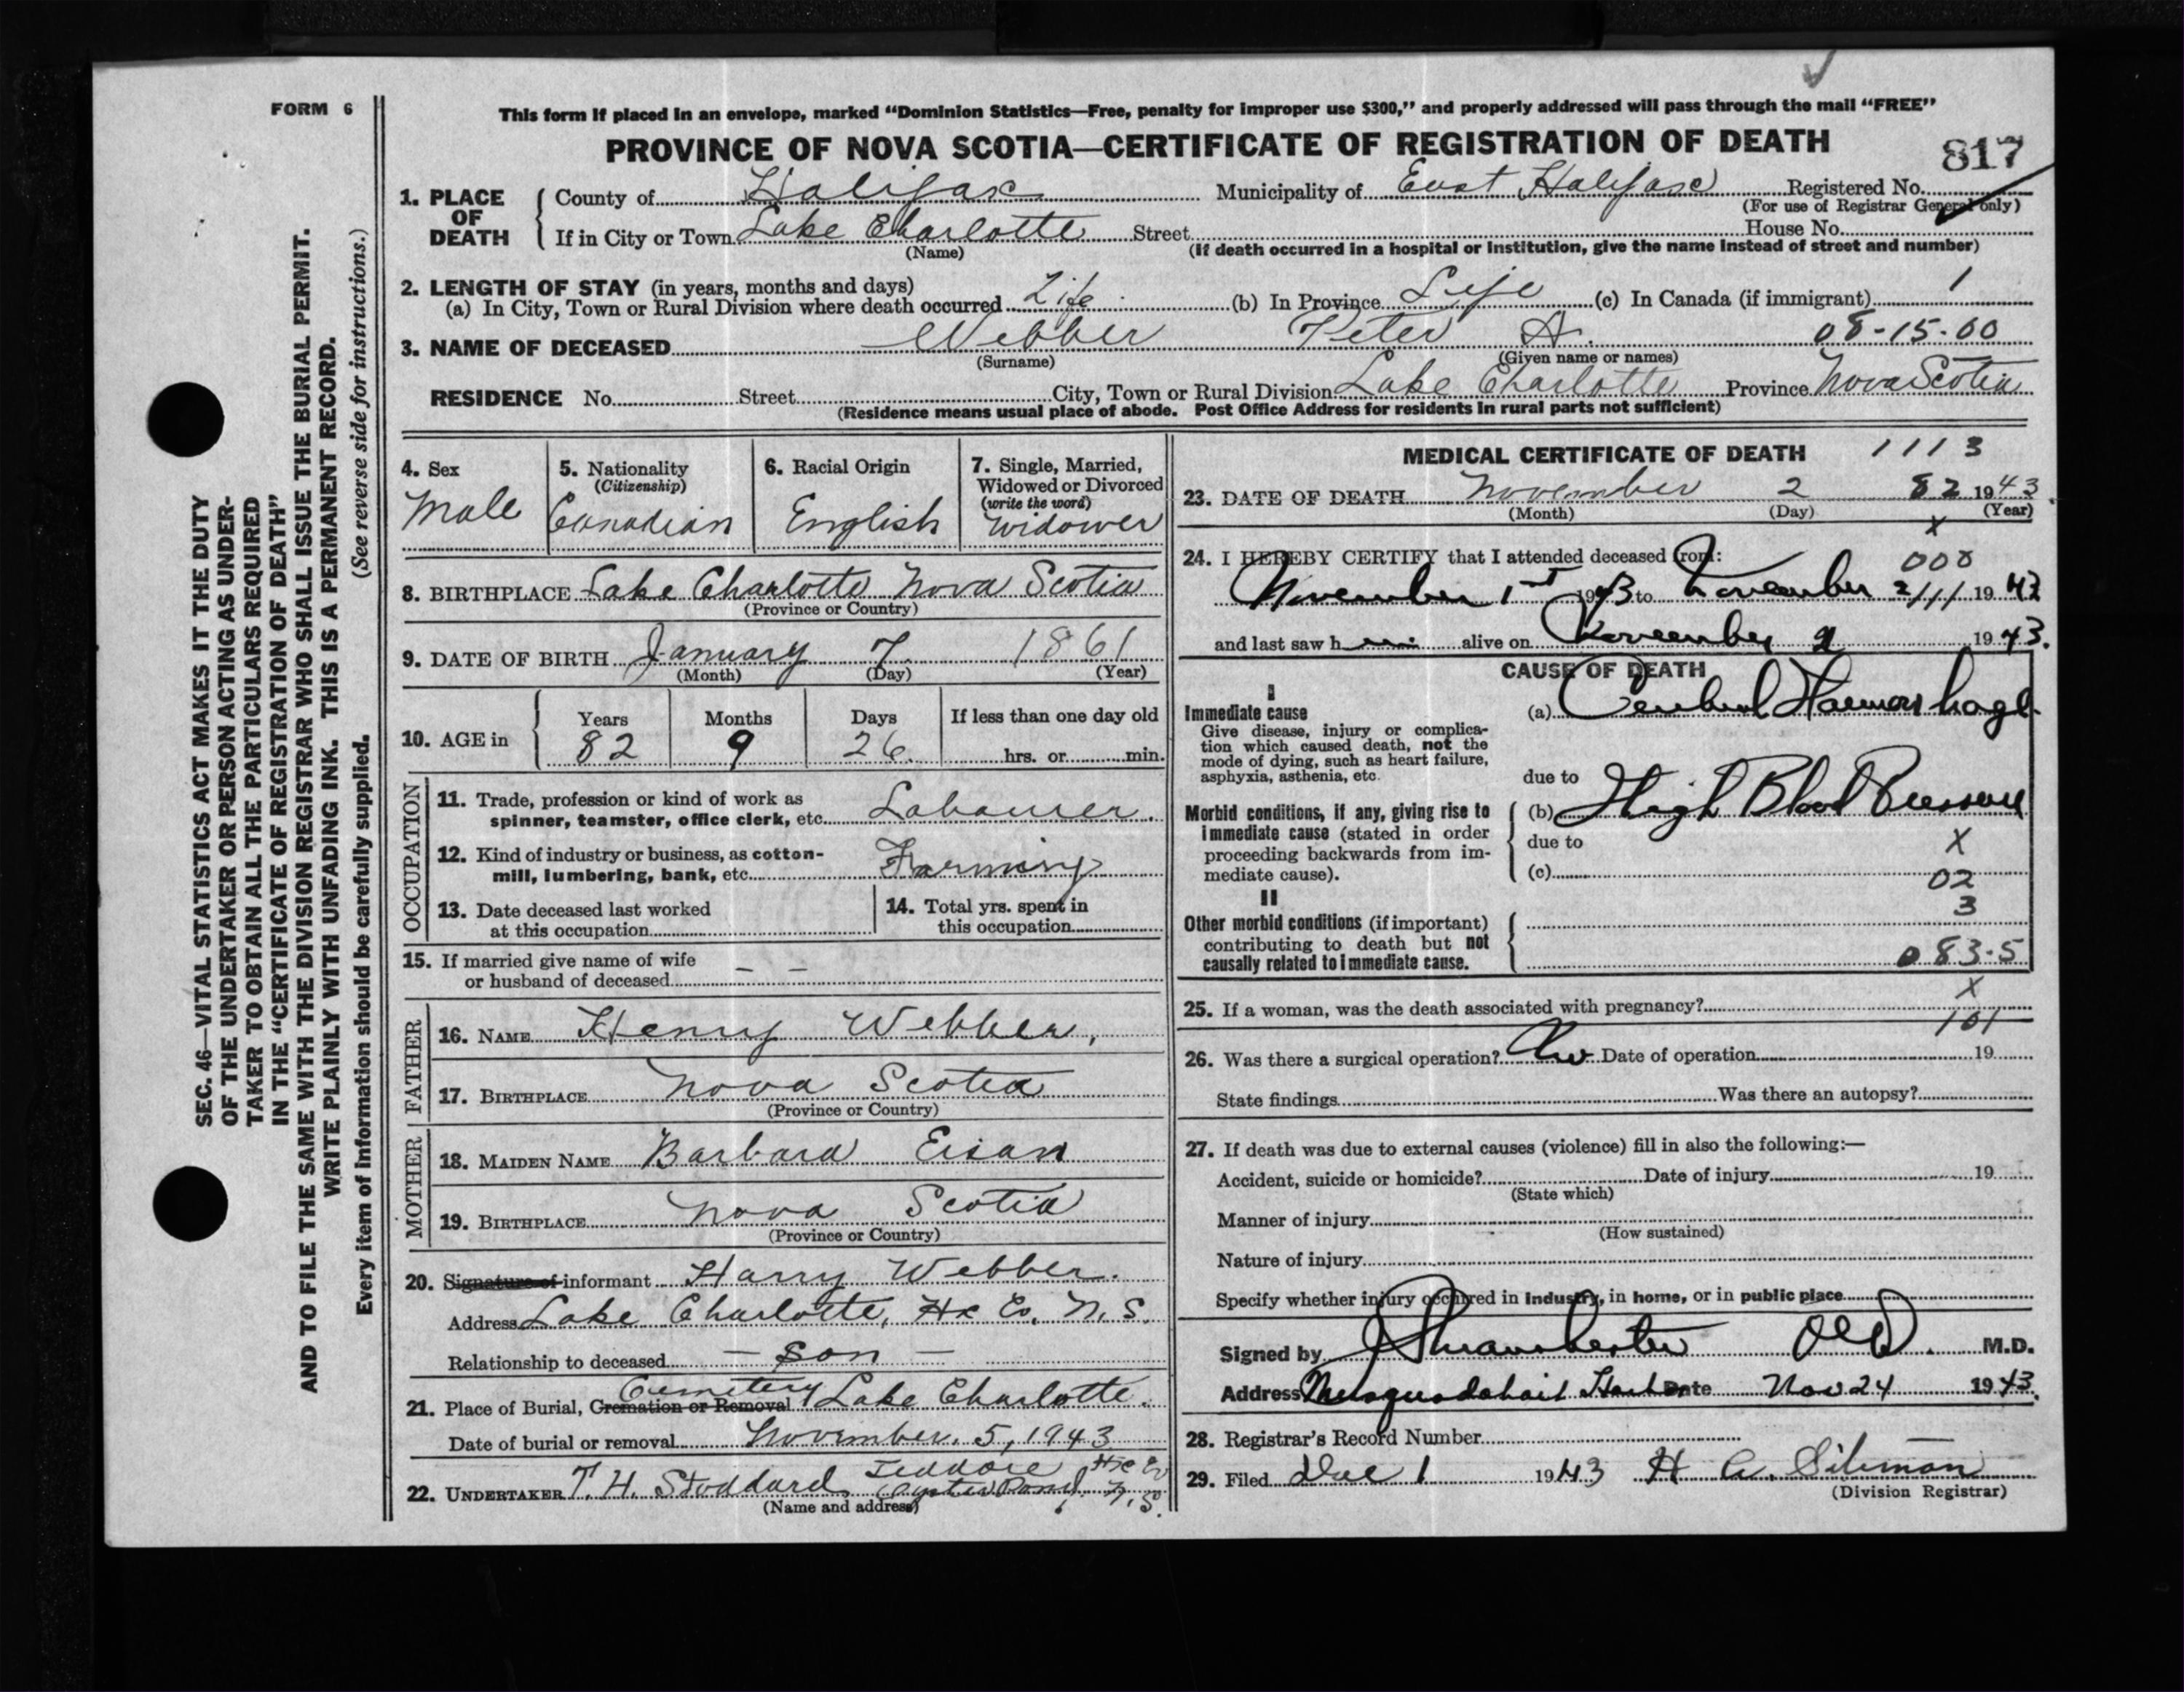 FORM 6
This form if placed in an envelope, marked “Dominion Statistics—Free, penalty for improper use $300,” and properly addressed will pass through the mail “FREE”
PROVINCE OF NOVA SCOTIA—CERTIFICATE OF REGISTRATION OF DEATH
817
1. PLACE OF DEATH { County of Halifax Municipality of East Halifax Registered No.
(For use of Registrar General only)
If in City or Town Lake Charlotte Street House No.
(Name) (If death occurred in a hospital or institution, give the name instead of street and number)
2. LENGTH OF STAY (in years, months and days)
(a) In City, Town or Rural Division where death occurred Life (b) In Province Life (c) In Canada (if immigrant) 1
3. NAME OF DECEASED Webber Peter A. 08-15-00
(Surname) (Given name or names)
RESIDENCE No. Street City, Town or Rural Division Lake Charlotte Province Nova Scotia
(Residence means usual place of abode. Post Office Address for residents in rural parts not sufficient)
4. Sex
Male
5. Nationality
(Citizenship)
Canadian
6. Racial Origin
English
7. Single, Married,
Widowed or Divorced
(write the word)
Widower
8. BIRTHPLACE Lake Charlotte Nova Scotia
(Province or Country)
9. DATE OF BIRTH January 7 1861
(Month) (Day) (Year)
10. AGE in { Years Months Days If less than one day old
82 9 26. hrs. or min.
OCCUPATION
11. Trade, profession or kind of work as
spinner, teamster, office clerk, etc. Labourer.
12. Kind of industry or business, as cotton-
mill, lumbering, bank, etc. Farming
13. Date deceased last worked
at this occupation
14. Total yrs. spent in
this occupation
15. If married give name of wife
or husband of deceased — —
FATHER
16. NAME Henry Webber,
17. BIRTHPLACE Nova Scotia
(Province or Country)
MOTHER
18. MAIDEN NAME Barbara Eisan
19. BIRTHPLACE Nova Scotia
(Province or Country)
20. Signature of informant Harry Webber.
Address Lake Charlotte, Hx Co. N.S.
Relationship to deceased — Son —
Cemetery
21. Place of Burial, Cremation or Removal Lake Charlotte.
Date of burial or removal November. 5, 1943
22. UNDERTAKER T. H. Stoddard Jeddore Oyster Pond, Hx Co N.S.
(Name and address)
MEDICAL CERTIFICATE OF DEATH 1113
23. DATE OF DEATH November 2 82 1943.
(Month) (Day) (Year)
X
24. I HEREBY CERTIFY that I attended deceased from: 000
November 1st 1943 to November 2/11/ 1943
and last saw h alive on November 2 1943.
CAUSE OF DEATH
I
Immediate cause
Give disease, injury or complica-
tion which caused death, not the
mode of dying, such as heart failure,
asphyxia, asthenia, etc.
(a) Cerebral Haemorrhage
due to
Morbid conditions, if any, giving rise to
immediate cause (stated in order
proceeding backwards from im-
mediate cause).
(b) High Blood Pressure
due to X
(c) 02
3
II
Other morbid conditions (if important)
contributing to death but not
causally related to immediate cause.
083.5
X
25. If a woman, was the death associated with pregnancy?
101
26. Was there a surgical operation? No Date of operation 19
State findings Was there an autopsy?
27. If death was due to external causes (violence) fill in also the following:—
Accident, suicide or homicide? Date of injury 19
(State which)
Manner of injury
(How sustained)
Nature of injury
Specify whether injury occurred in industry, in home, or in public place
Signed by M.D.
Address Musquodoboit Harb Date Nov 24 1943.
28. Registrar's Record Number
29. Filed Dec 1 1943 H
(Division Registrar)
SEC. 46—VITAL STATISTICS ACT MAKES IT THE DUTY
OF THE UNDERTAKER OR PERSON ACTING AS UNDER-
TAKER TO OBTAIN ALL THE PARTICULARS REQUIRED
IN THE “CERTIFICATE OF REGISTRATION OF DEATH”
AND TO FILE THE SAME WITH THE DIVISION REGISTRAR WHO SHALL ISSUE THE BURIAL PERMIT.
WRITE PLAINLY WITH UNFADING INK. THIS IS A PERMANENT RECORD.
Every item of information should be carefully supplied. (See reverse side for instructions.)